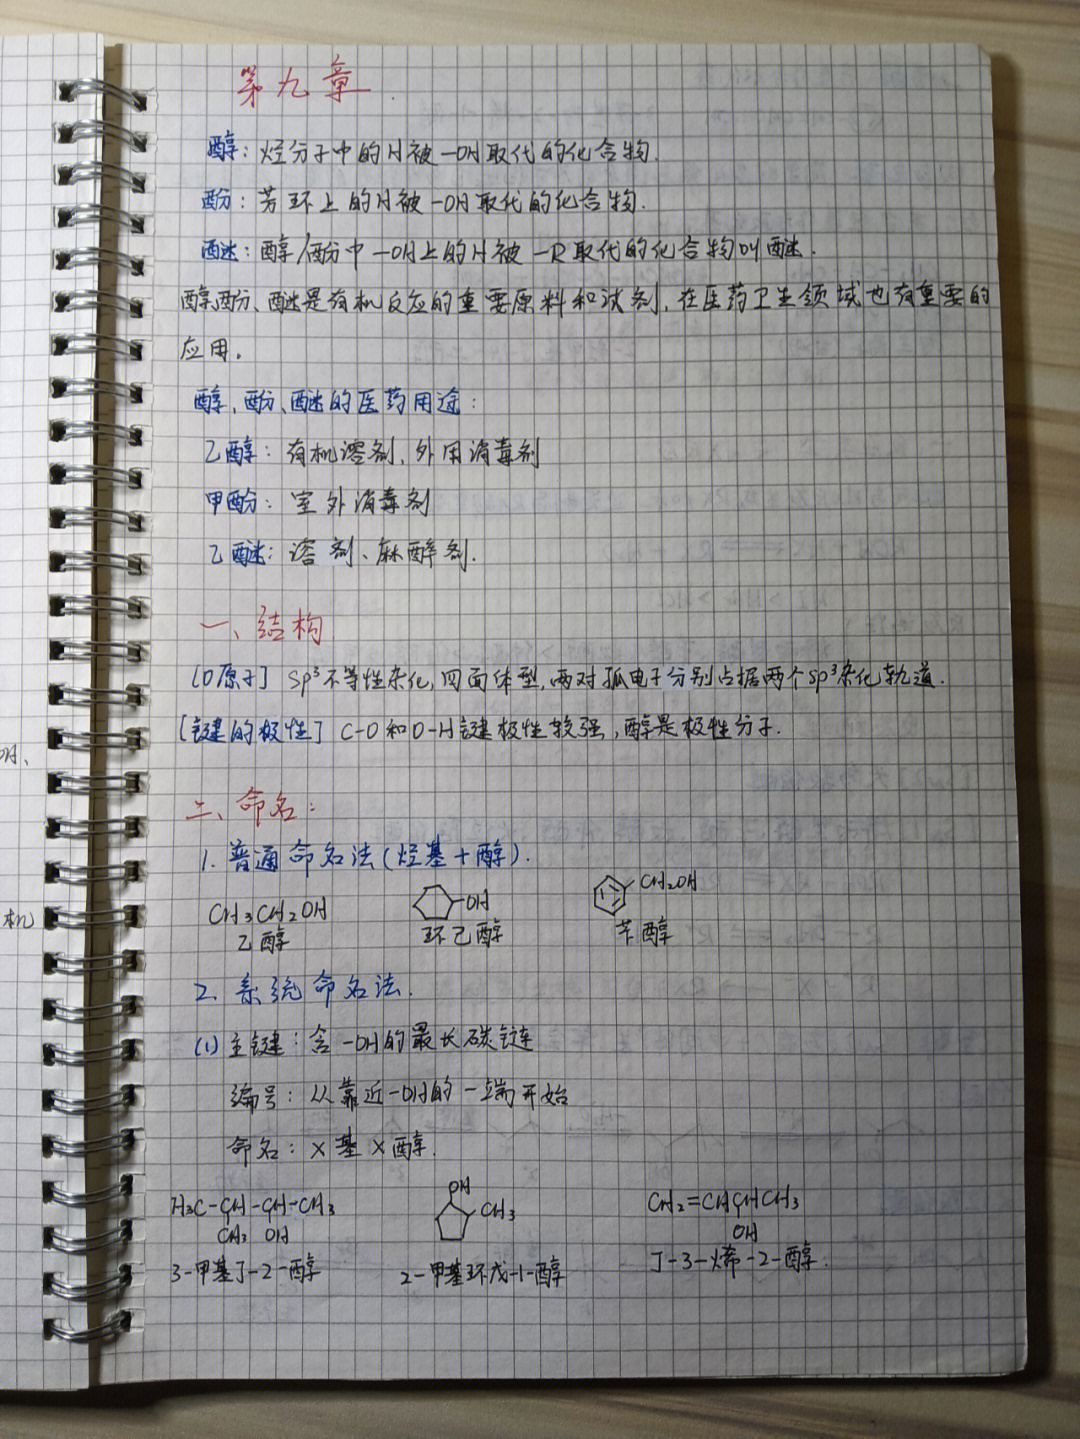 第九章
醇：烃分子中的H被-OH取代的化合物.
酚：芳环上的H被-OH取代的化合物.
醚：醇/酚中-OH上的H被-R取代的化合物叫醚.
醇、酚、醚是有机反应的重要原料和试剂，在医药卫生领域也有重要的
应用。
醇、酚、醚的医药用途：
乙醇：有机溶剂、外用消毒剂
甲酚：室外消毒剂
乙醚：溶剂、麻醉剂.
一、结构
[O原子] sp³不等性杂化，四面体型，两对孤电子分别占据两个sp³杂化轨道.
[键的极性] C-O和O-H键极性较强，醇是极性分子.
OH、
二、命名：
1. 普通命名法（烃基+醇）.
CH₃CH₂OH -OH CH₂OH
机 乙醇 环己醇 苄醇
2. 系统命名法.
(1) 主键：含-OH的最长碳链
编号：从靠近-OH的一端开始
命名：X基X醇.
H₃C-CH-CH-CH₃ OH CH₃ CH₂=CHCHCH₃
CH₃ OH OH
3-甲基丁-2-醇 2-甲基环戊-1-醇 丁-3-烯-2-醇.